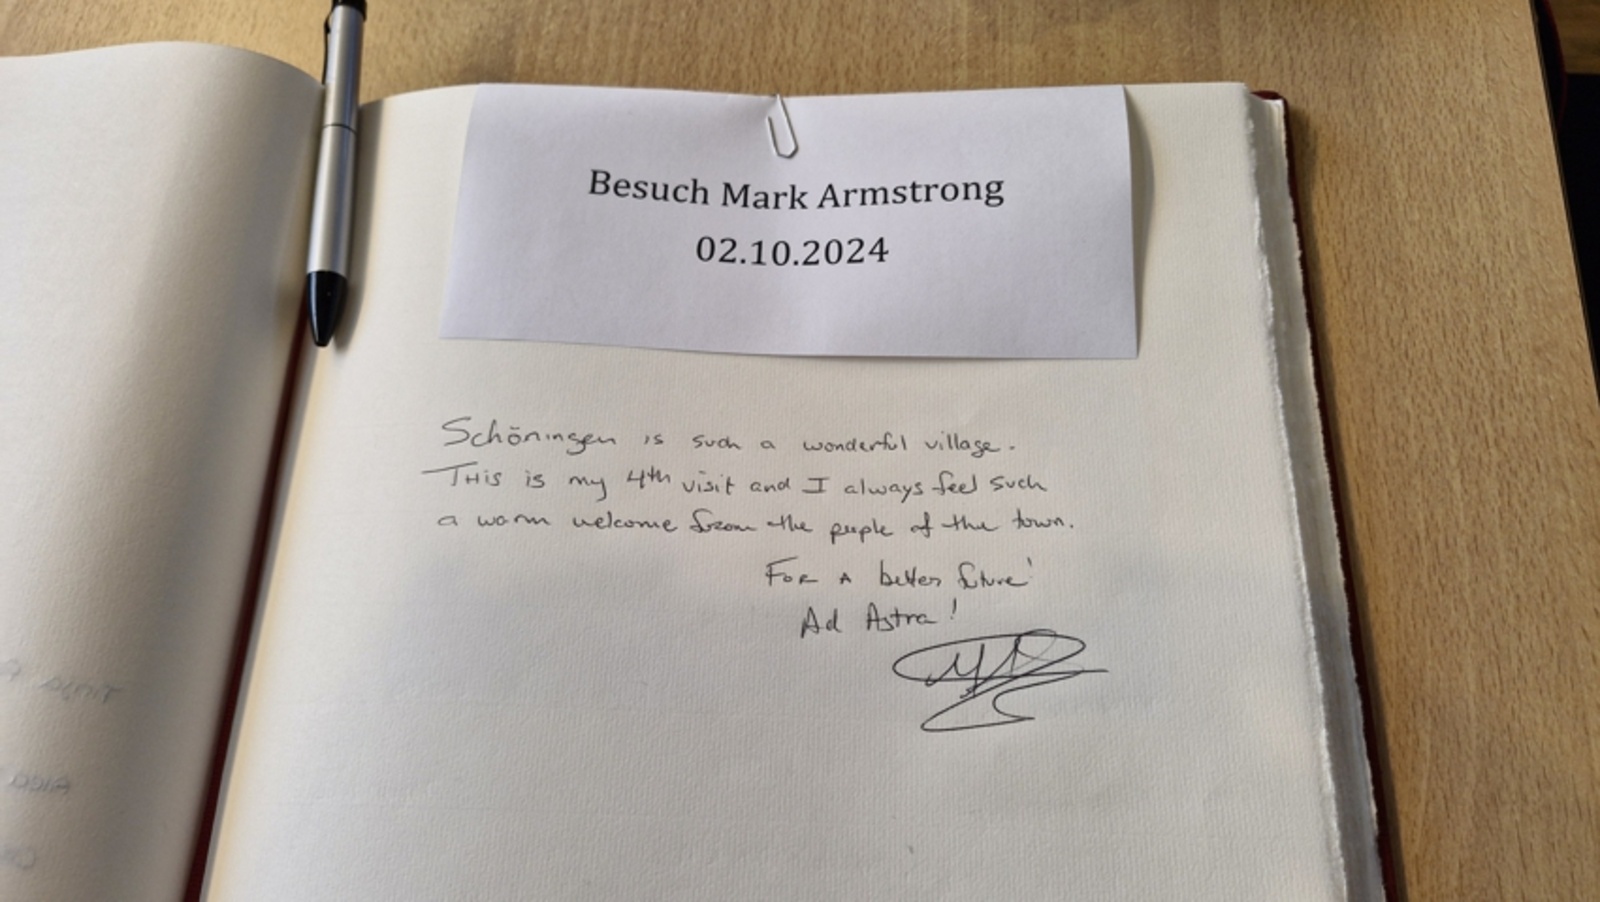 Besuch Mark Armstrong
02.10.2024
Schöningen is such a wonderful village.
This is my 4th visit and I always feel such
a warm welcome from the people of the town.
For a better future!
Ad Astra!